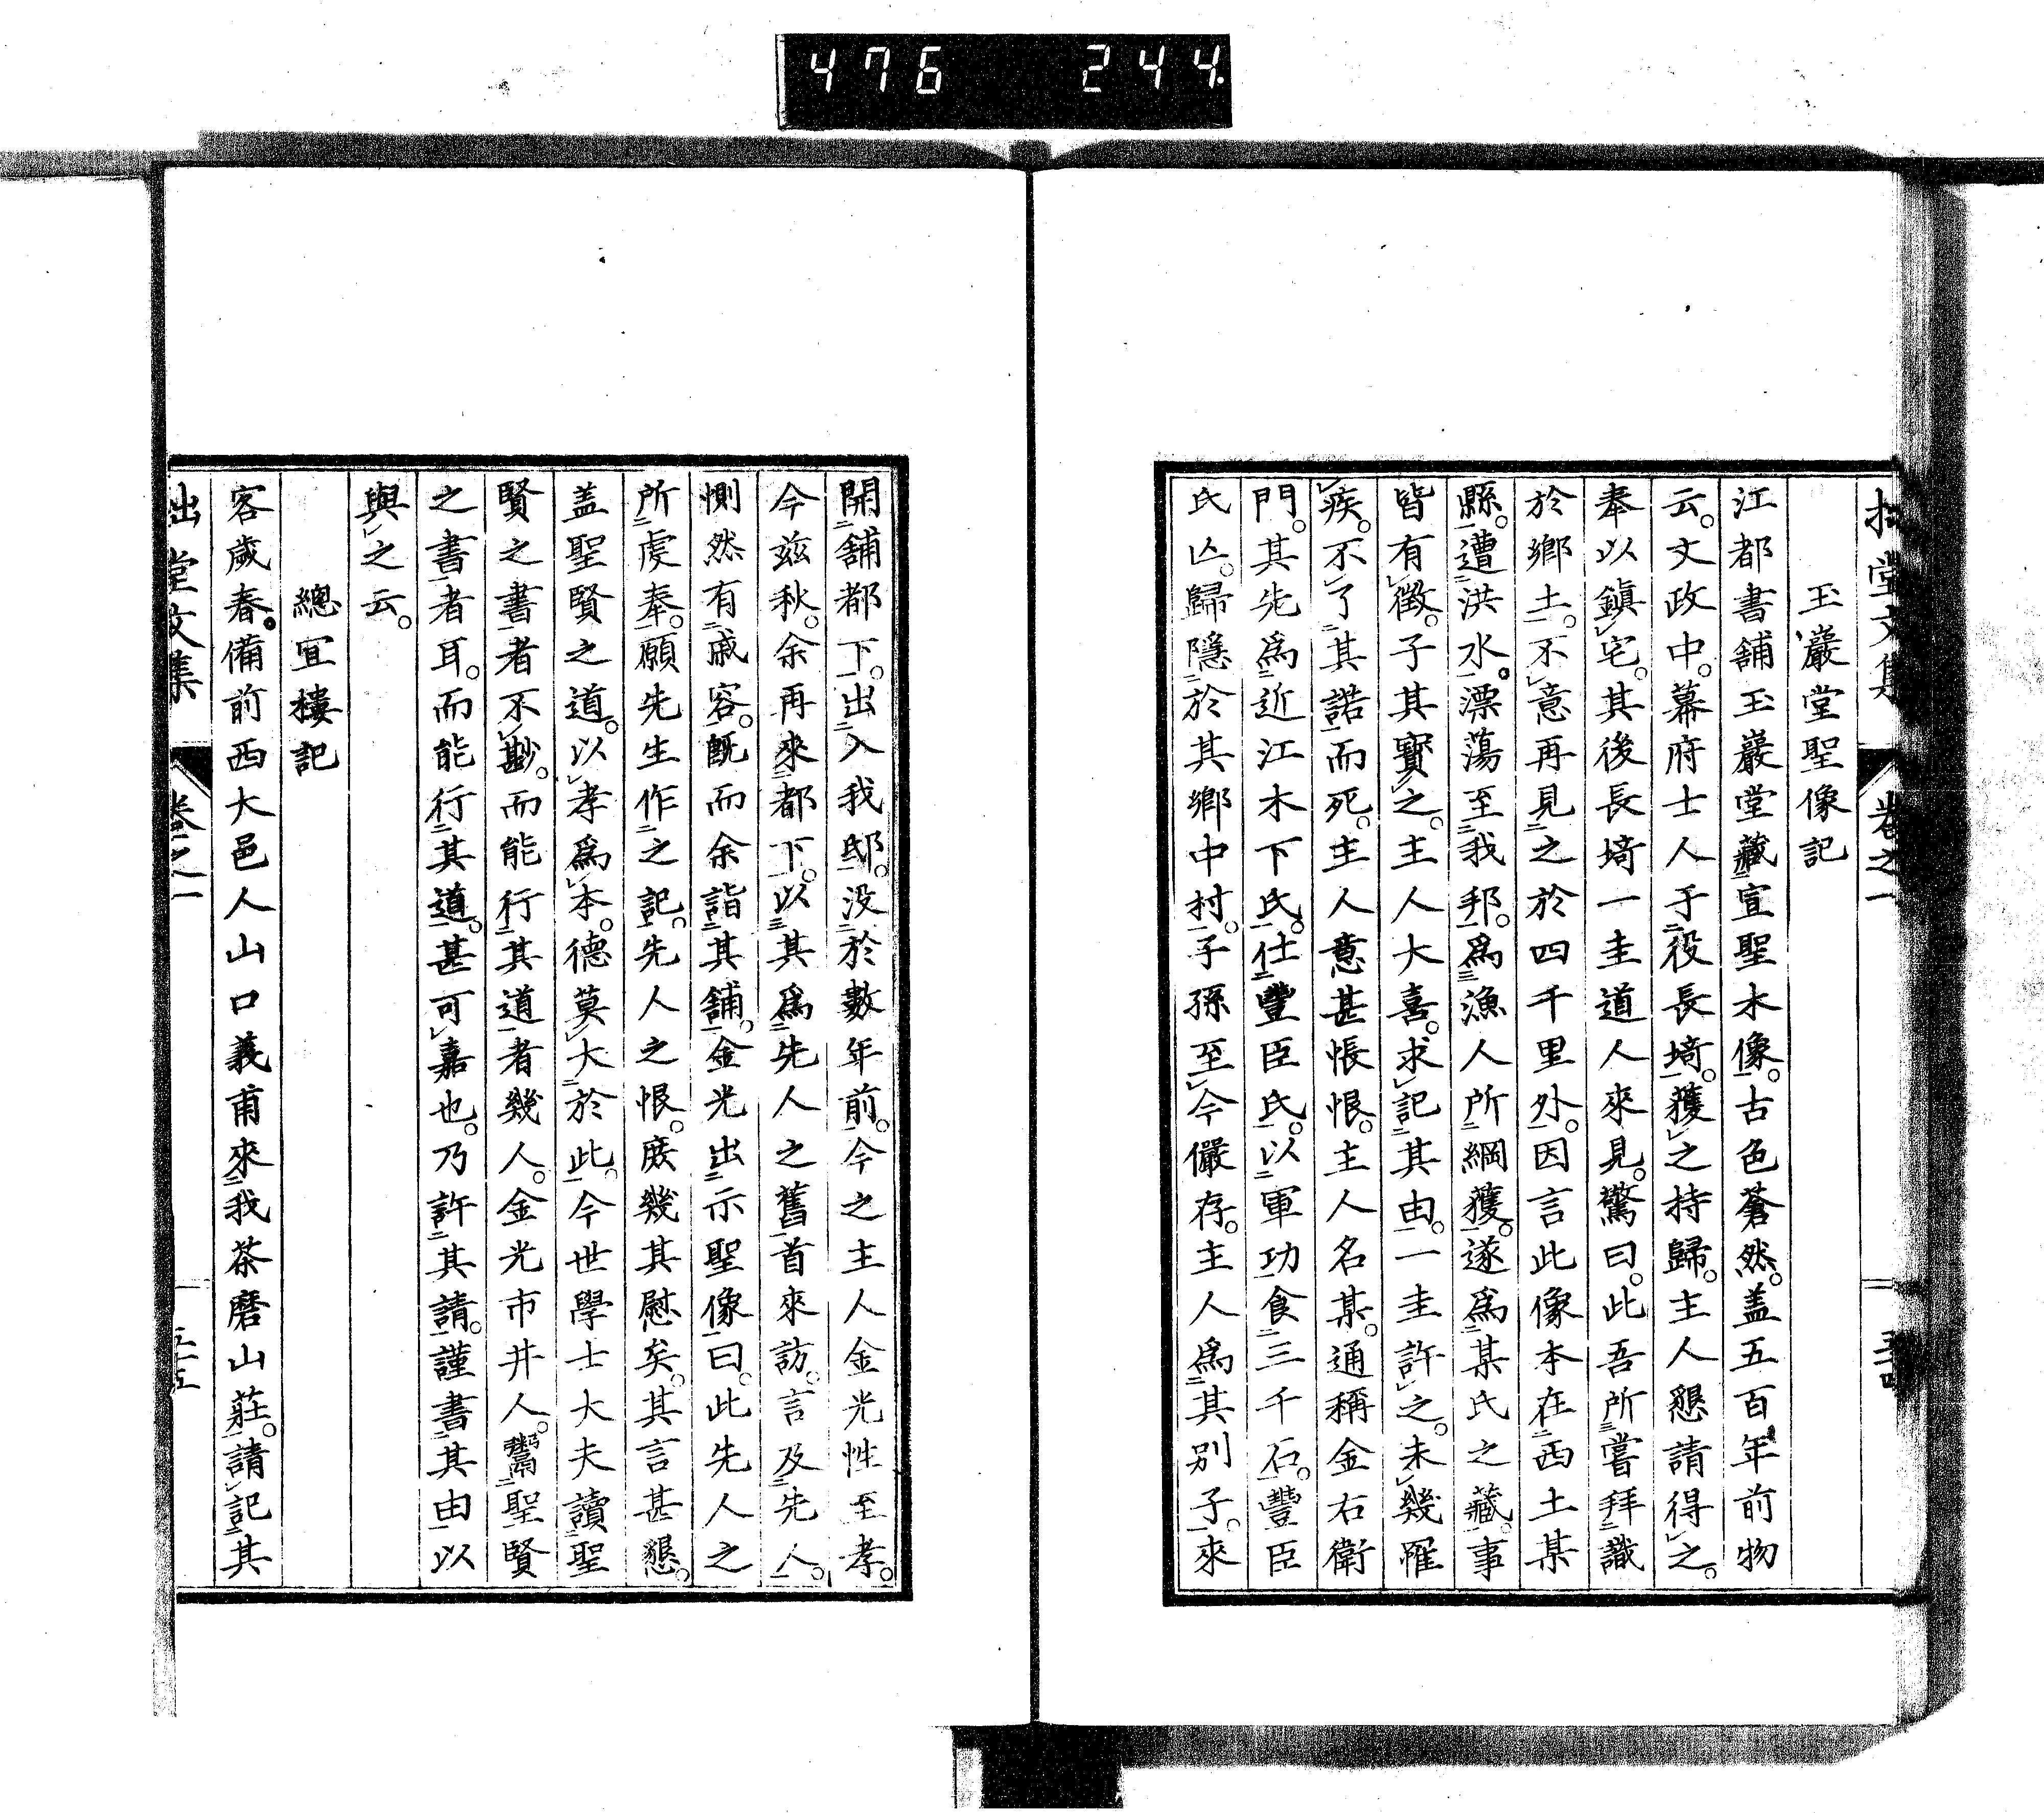 476 244
拙堂文集 卷之一
玉巖堂聖像記
江都書舖玉巖堂藏宣聖木像。古色蒼然。盖五百年前物
云。文政中。幕府士人于役長埼。獲之持歸。主人懇請得之。
奉以鎭宅。其後長埼一圭道人來見。驚曰。此吾所嘗拜識
於鄉土。不意再見之於四千里外。因言此像本在西土某
縣。遭洪水。漂蕩至我邦。爲漁人所網獲。遂爲某氏之藏。事
皆有徵。子其寶之。主人大喜。求記其由。一圭許之。未幾罹
疾。不了其諾而死。主人意甚悵恨。主人名某。通稱金右衛
門。其先爲近江木下氏。仕豐臣氏。以軍功食三千石。豐臣
氏亾。歸隱於其鄉中村。子孫至今儼存。主人爲其別子。來
開舖都下。出入我邸。没於數年前。今之主人金光性至孝。
今兹秋。余再來都下。以其爲先人之舊首來訪。言及先人。
惻然有戚容。既而余詣其舖。金光出示聖像曰。此先人之
所虔奉。願先生作之記。先人之恨。庶幾其慰矣。其言甚懇。
盖聖賢之道。以孝爲本。德莫大於此。今世學士大夫讀聖
賢之書者不尠。而能行其道者幾人。金光市井人。鬻聖賢
之書者耳。而能行其道。甚可嘉也。乃許其請。謹書其由以
與之云。
總宜樓記
客歲春。備前西大邑人山口義甫來我茶磨山莊。請記其
拙堂文集 卷之一 三十五